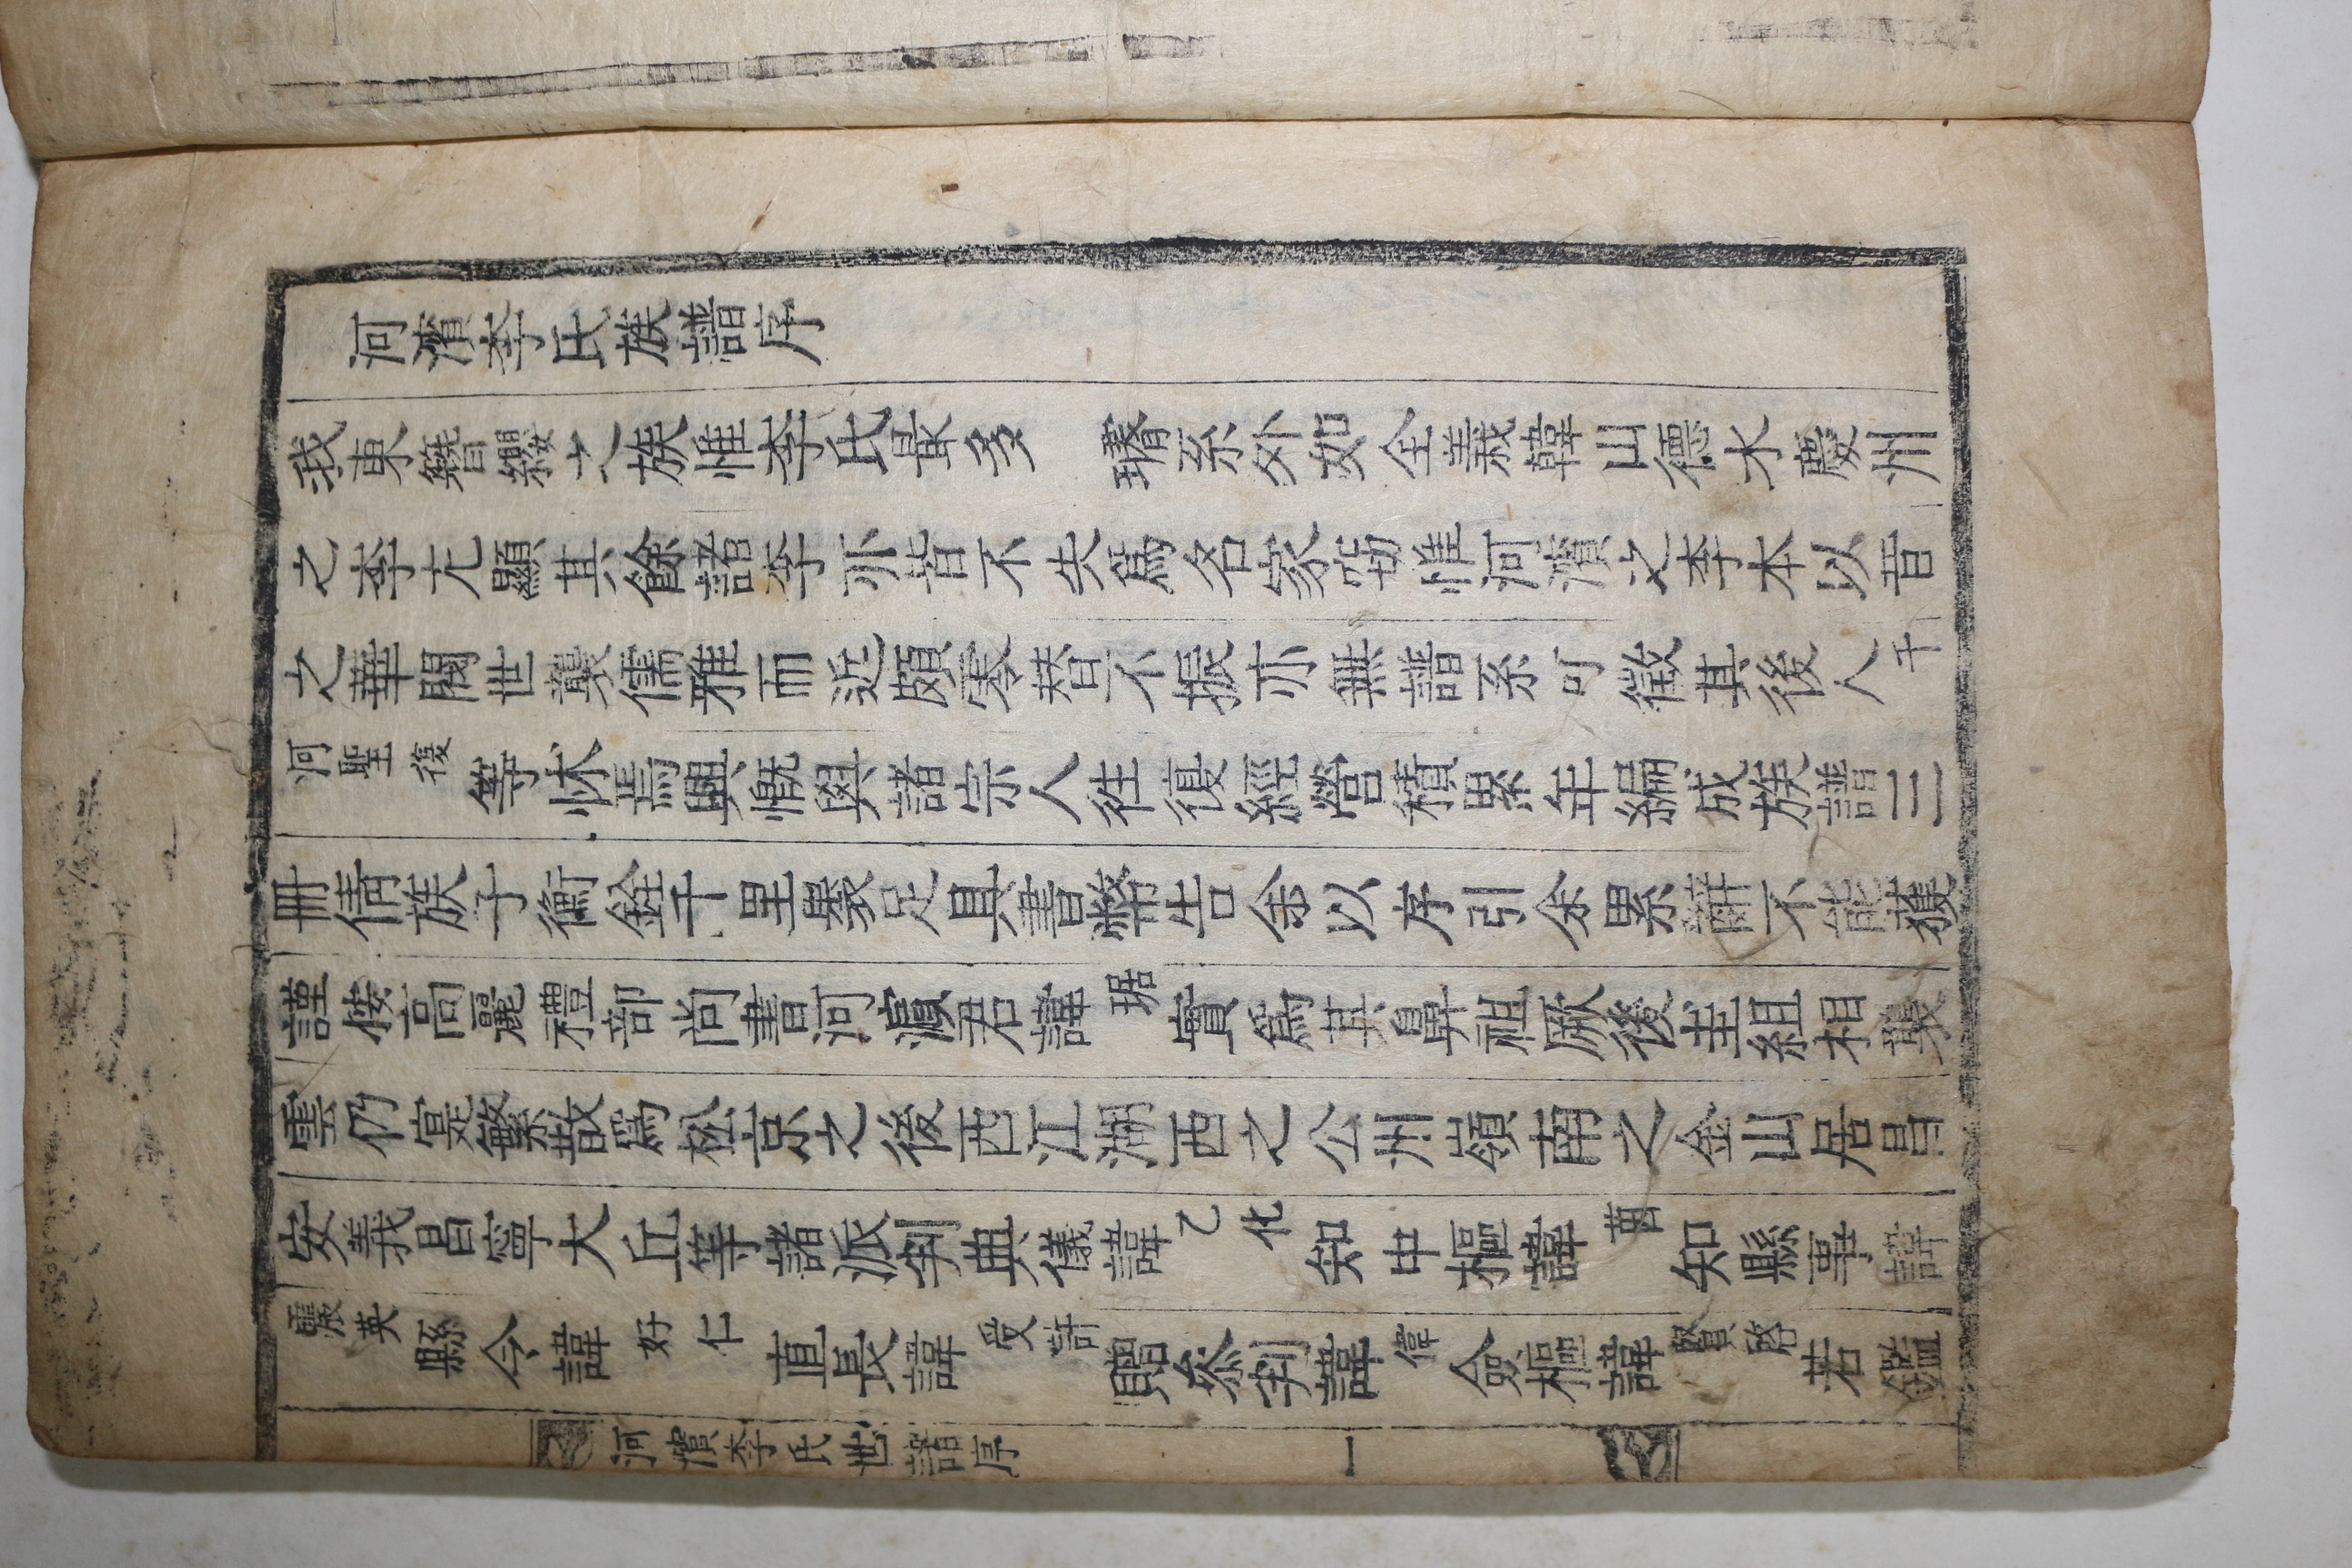 河濱李氏族譜序
我東簪纓之族惟李氏最多 璿系外如全義韓山德水慶州
之李尤顯其餘諸李亦皆不失爲名家窃惟河濱之李本以昔
之華閥世襲儒雅而近頗零替不振亦無譜系可徵其後人千
河聖復等怵焉興慨與諸宗人往復經營積累年編成族譜三
冊倩族子衡銓千里裹足具書幣告余以序引余累辭不能獲
謹按高麗禮部尚書河濱君諱琚實爲其鼻祖厥後圭組相襲
雲仍寔繁散爲松京之後西江湖西之公州嶺南之金山居昌
安義昌寧大丘等諸派判典儀諱乙化知中樞諱茴知縣事諱
震英縣令諱好仁直長諱受許贈叅判諱偉僉樞諱賢啓若鑑
河濱李氏世譜序 一